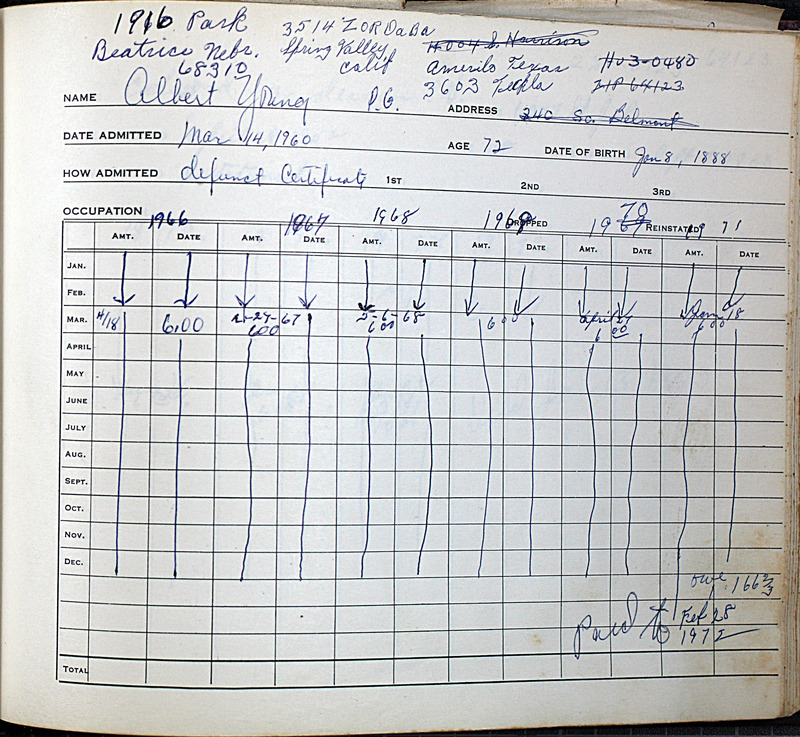 1916 Park 3514 ZORDaBa H004 S. Harrison
Beatrice Nebr. Spring Valley, Amerilo Texas HU3-0480
68310 Calif 3603 ZIP 64123
NAME Albert Young P.G. ADDRESS 240 So. Belmont
DATE ADMITTED Mar 14, 1960 AGE 72 DATE OF BIRTH Jan 8, 1888
HOW ADMITTED defunct Certificate 1ST 2ND 3RD
OCCUPATION DROPPED REINSTATED
1966 1967 1968 1969 1970 1971
AMT. DATE AMT. DATE AMT. DATE AMT. DATE AMT. DATE AMT. DATE
JAN.
FEB.
MAR. 4/18 6.00 2-27-67 6.00 2-6-68 6.00 6.00 April 27 6.00 Jan 18 6.00
APRIL
MAY
JUNE
JULY
AUG.
SEPT.
OCT.
NOV.
DEC.
owe 1.66 2/3
paid to Feb 28
1972
TOTAL